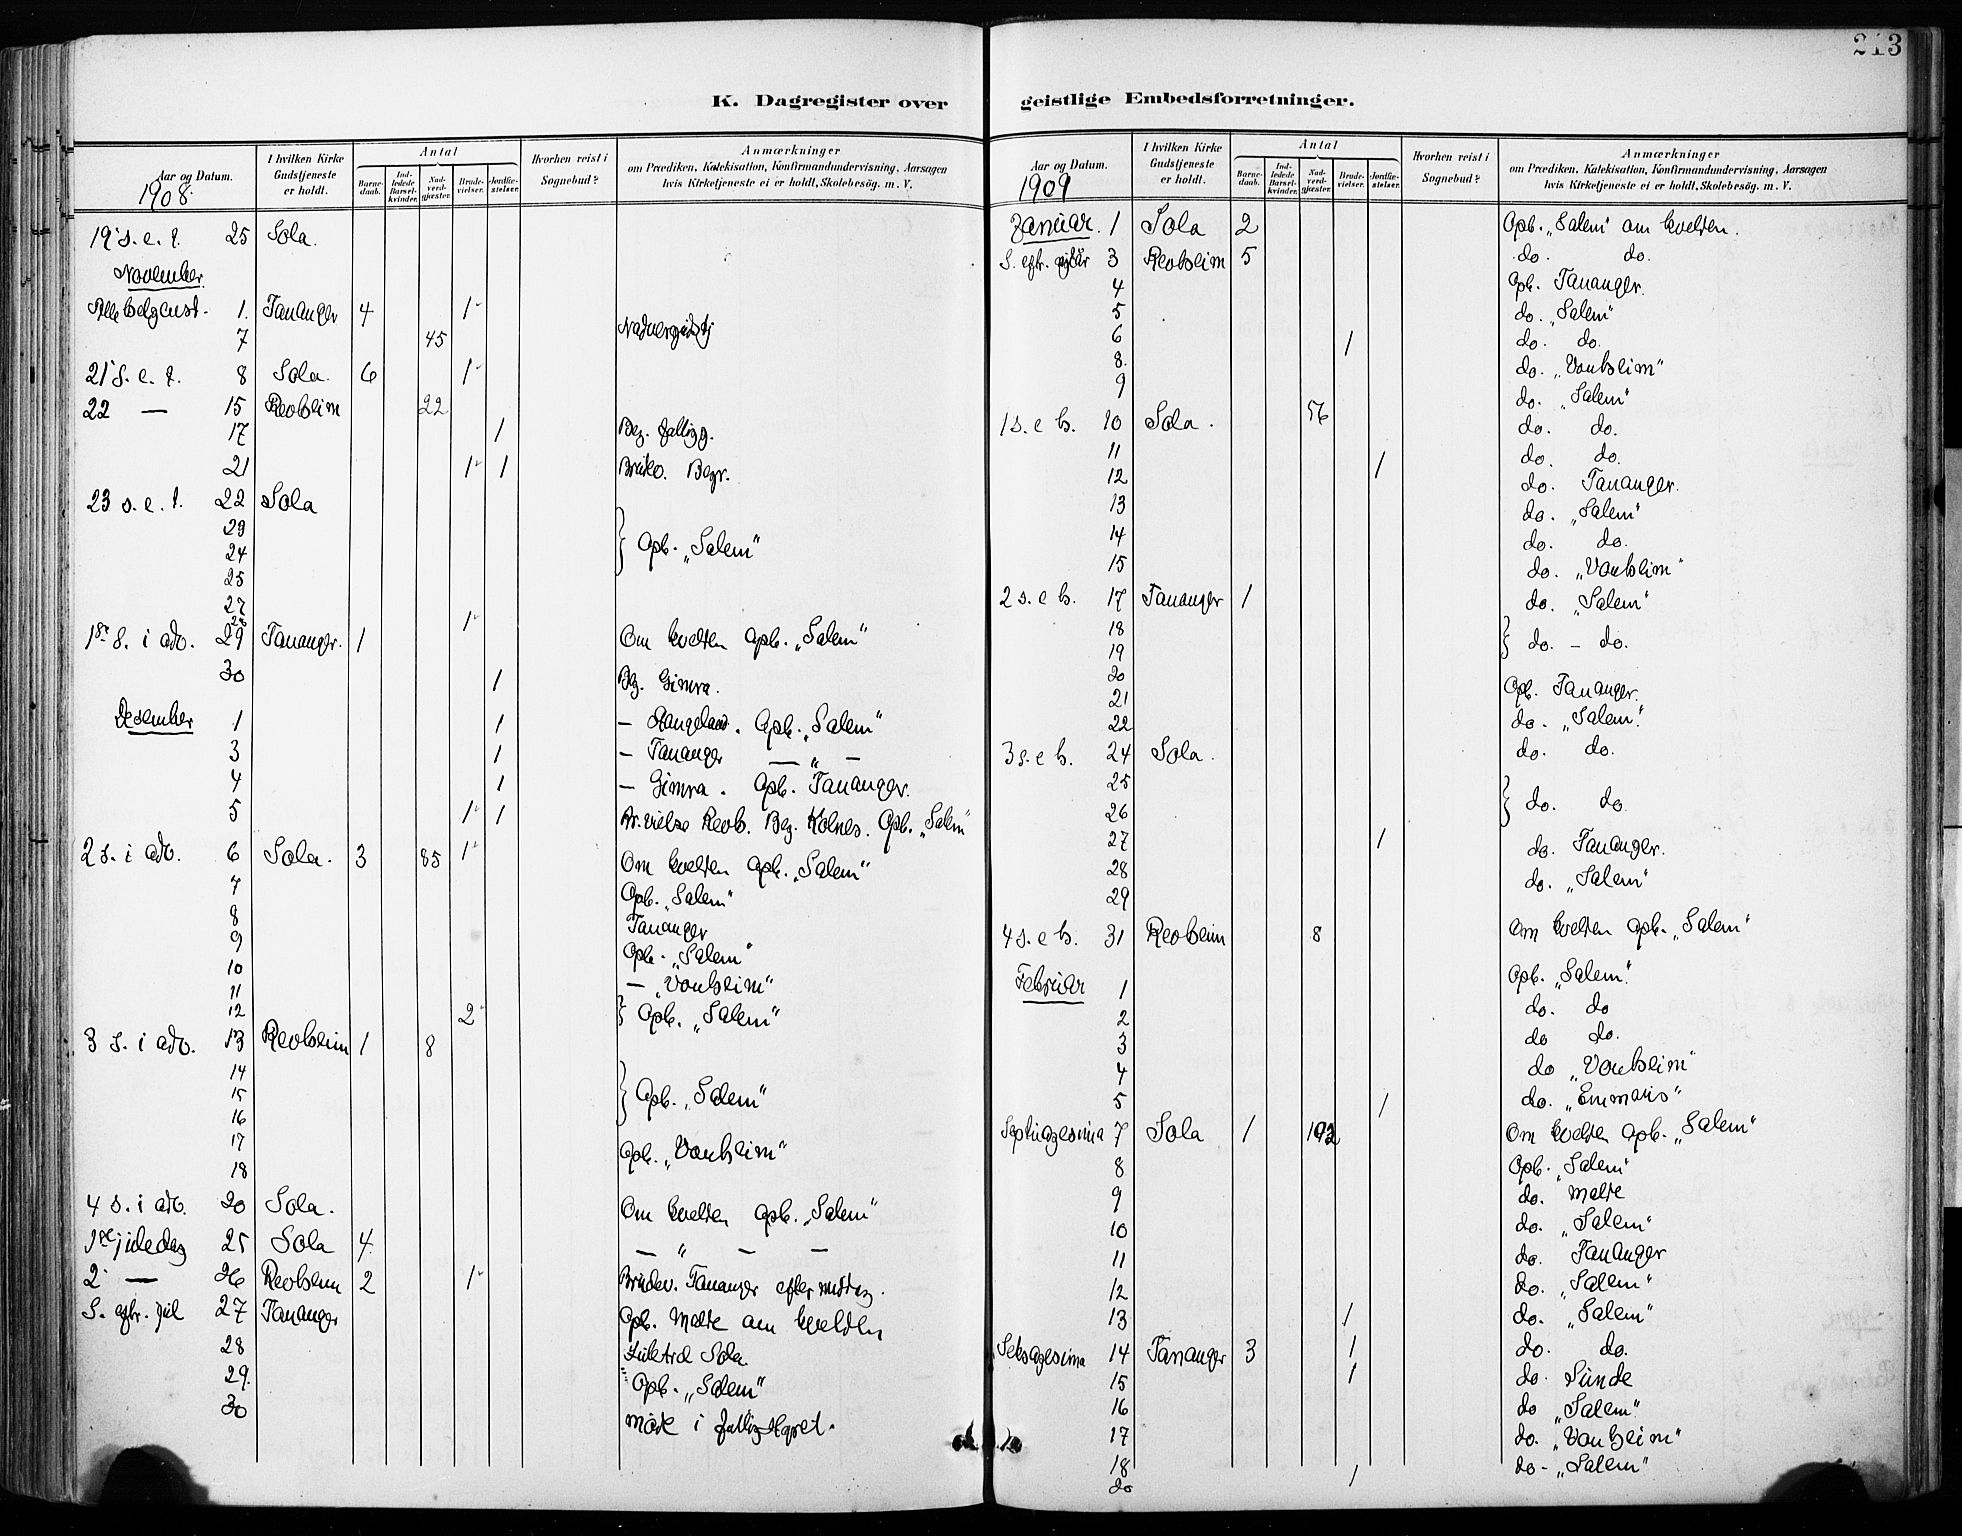 213
K. Dagregister over
Aar og Datum.
1908.
I hvilken Kirke Gudstjeneste er holdt.
Antal
Barne-daab.
Ind-ledede Barsel-kvinder.
Nad-verd-gjæster.
Brude-vielser.
Jordfæ-stelser.
Hvorhen reist i Sognebud?
Anmærkninger
om Prædiken, Katekisation, Konfirmandundervisning, Aarsagen
hvis Kirketjeneste ei er holdt, Skolebesøg. m. V.
19 s. e. t. 25 Sola.
November
Allehelgensst. 1. Tananger 4 1
7 45
21 s. e. t. 8 Sola. 6 1
22 — 15 Revheim 22
17 1 Beg.
21 1 1 Brudv. Begr.
23 s. e. t. 22 Sola
23
24 } Opb. „Salem"
25
27
28 1
1ste s. i adv. 29 Tananger. 1 Om kvelden Opb. „Salem"
30 1 Beg. Gimra.
Desember 1 1 — Stangeland. Opb. „Salem"
3 1 — Tananger — „ —
4 1 — Gimra. Opb. Tananger.
5 1 1 Br.vielse Revh. Beg. Kolnes. Opb. „Salem"
2 s. i adv. 6 Sola. 3 85 1 Om kvelden Opb. „Salem"
7 Opb. „Salem"
8 Tananger
9 Opb. „Salem"
10
11 — „Vonheim"
12 2 } Opb. „Salem"
3 s. i adv. 13 Revheim 1 8
14
15 } Opb. „Salem"
16
17 Opb. „Vonheim"
18
4 s. i adv. 20 Sola. Om kvelden Opb. „Salem"
1ste juledag 25 Sola 4. — „ — —
2. — 26 Revheim 2 1 Brudev. Tananger eftermiddag.
S. eftr. jul 27 Tananger Opb. Malde om kvelden
28 Juletræ Sola
29. Opb. „Salem"
30 Møte i
geistlige Embedsforretninger.
Aar og Datum.
1909
I hvilken Kirke Gudstjeneste er holdt.
Antal
Barne-daab.
Ind-ledede Barsel-kvinder.
Nad-verd-gjæster.
Brude-vielser.
Jordfæ-stelser.
Hvorhen reist i Sognebud?
Anmærkninger
om Prædiken, Katekisation, Konfirmandundervisning, Aarsagen
hvis Kirketjeneste ei er holdt, Skolebesøg. m. V.
Januar. 1 Sola 2 Opb. „Salem" om kvelden.
S. eftr. nytår 3 Revheim 5 do. do.
4 Opb. Tananger.
5 do. „Salem"
6 1 do. do.
8. do. „Vonheim"
9 do. „Salem"
1 s. e h. 10 Sola. 56 do. do.
11 do. do.
12 1 do. Tananger.
13 do. „Salem"
14 do. do.
15 do. „Vonheim"
2 s. e h. 17 Tananger 1 do. „Salem"
18 } do. — do.
19
20 Opb. Tananger.
21
22 do. „Salem".
3 s. e h. 24 Sola. do. do.
25 } do. do.
26
27 1 do. Tananger.
28 do. „Salem"
29
4 s. e h. 31 Revheim 8 Om kvelden Opb. „Salem"
Februar 1 Opb. „Salem".
2 do. do
3 do do.
4 do „Vonheim"
5 1 do. „Emmaus"
Septuagesima 7 Sola 1 192 Om kvelden Opb. „Salem"
8 Opb. „Salem"
9 do. Malde
10 do. „Salem"
11 do. Tananger
12 do. „Salem"
13 1 do. „Salem"
Seksagesima 14 Tananger 3 1 do. do.
15 1 do. Sunde
16 do „Salem"
17 do. „Vonheim"
18 do. „Salem"
20 1